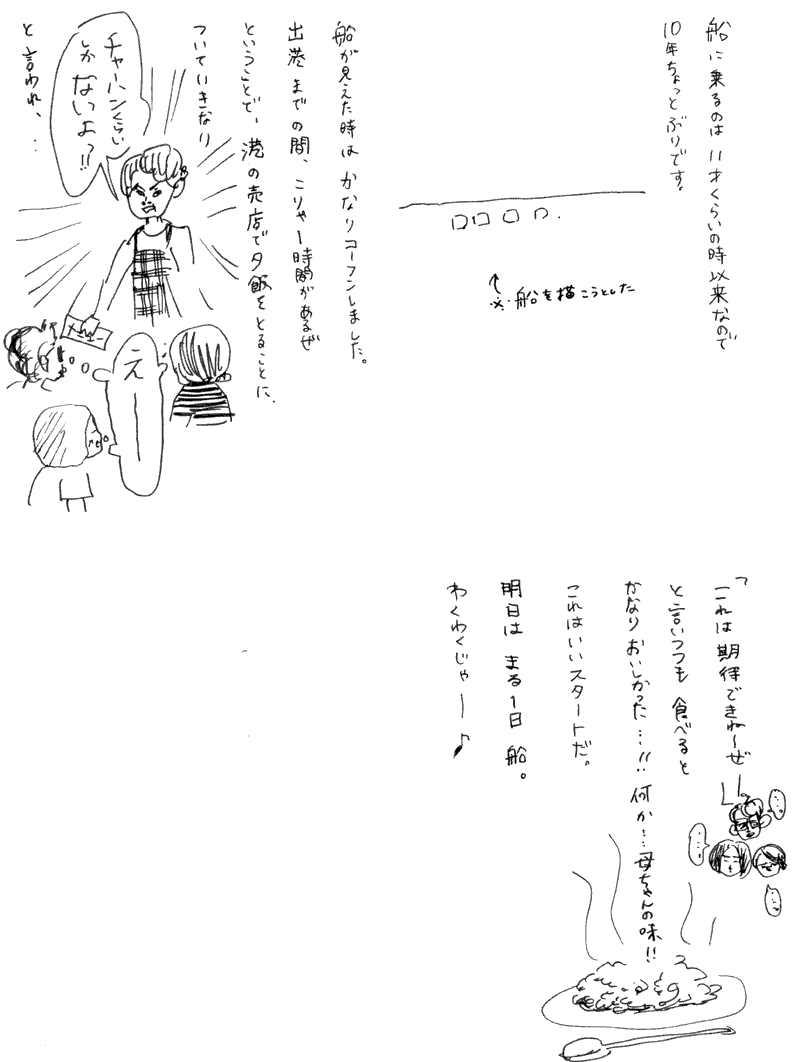 船に乗るのは11才くらいの時以来なので
10年ちょっとぶりです。
↑
※船を描こうとした
船が見えた時はかなりコーフンしました。
出港までの間、こりゃ1時間があるぜ
ということで、港の売店で夕飯をとることに。
ついていきなり
チャーハンくらい
しかないよっ!!
と言われ、…
えー
「これは期待できねーぜ」
と言いつつも食べると
かなりおいしかった…!! 何か…母ちゃんの味!!
これはいいスタートだ。
明日はまる1日船。
わくわくじゃー♪